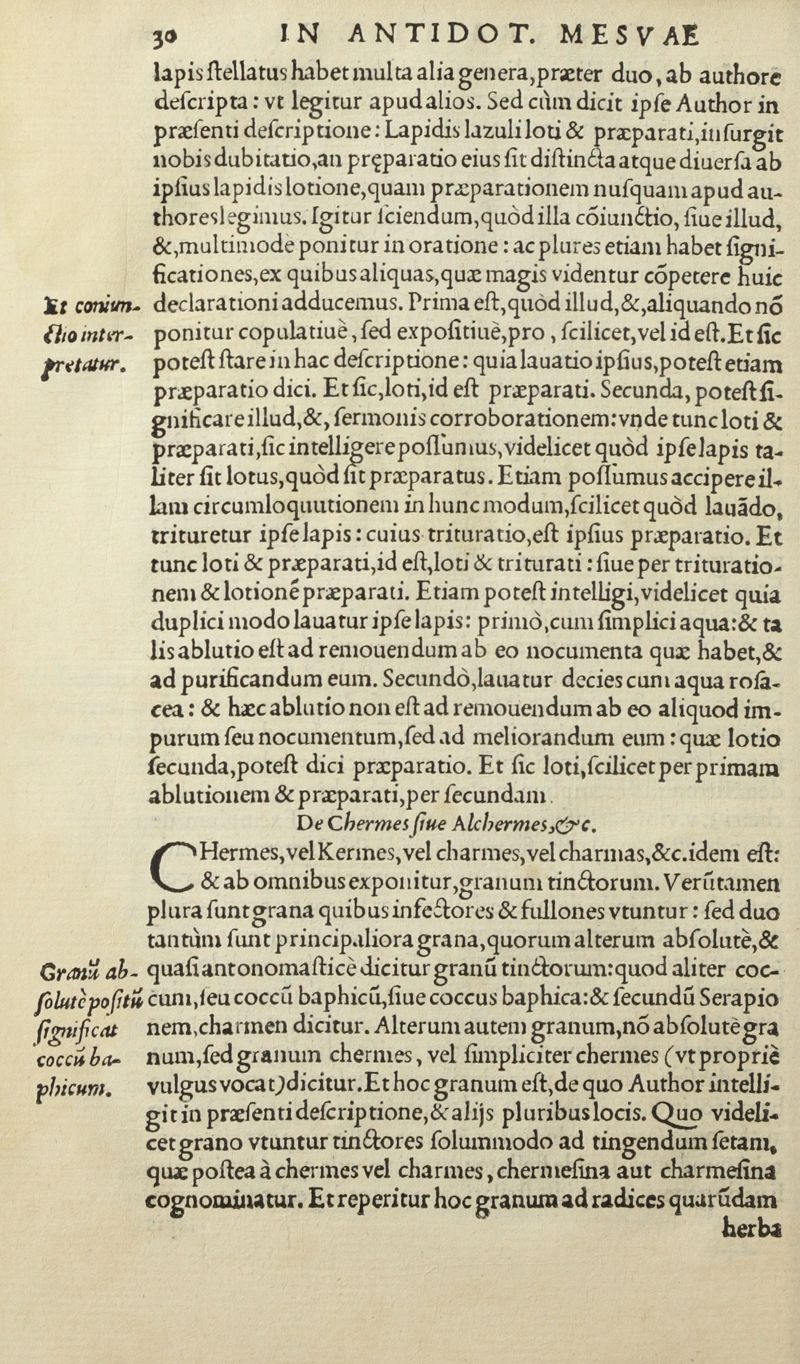 30 IN ANTIDOT. MESVAE
lapis ſtellatus habet multa alia genera, præter duo, ab authore
deſcripta: vt legitur apud alios. Sed cùm dicit ipſe Author in
præſenti deſcriptione: Lapidis lazuli loti & præparati, inſurgit
nobis dubitatio, an pręparatio eius ſit diſtincta atque diuerſa ab
ipſius lapidis lotione, quam præparationem nuſquam apud au-
thores legimus. Igitur ſciendum, quòd illa cõiunctio, ſiue illud,
&, multimode ponitur in oratione: ac plures etiam habet ſigni-
ficationes, ex quibus aliquas, quæ magis videntur cõpetere huic
declarationi adducemus. Prima eſt, quòd illud, &, aliquando nõ
ponitur copulatiuè, ſed expoſitiuè, pro, ſcilicet, vel id eſt. Et ſic
poteſt ſtare in hac deſcriptione: quia lauatio ipſius, poteſt etiam
præparatio dici. Et ſic, loti, id eſt præparati. Secunda, poteſt ſi-
gnificare illud, &, ſermonis corroborationem: vnde tunc loti &
præparati, ſic intelligere poſſumus, videlicet quòd ipſe lapis ta-
liter ſit lotus, quòd ſit præparatus. Etiam poſſumus accipere il-
lam circumloquutionem in hunc modum, ſcilicet quòd lauãdo,
trituretur ipſe lapis: cuius trituratio, eſt ipſius præparatio. Et
tunc loti & præparati, id eſt, loti & triturati: ſiue per trituratio-
nem & lotionē præparati. Etiam poteſt intelligi, videlicet quia
duplici modo lauatur ipſe lapis: primò, cum ſimplici aqua: & ta
lis ablutio eſt ad remouendum ab eo nocumenta quæ habet, &
ad purificandum eum. Secundò, lauatur decies cum aqua roſa-
cea: & hæc ablutio non eſt ad remouendum ab eo aliquod im-
purum ſeu nocumentum, ſed ad meliorandum eum: quæ lotio
ſecunda, poteſt dici præparatio. Et ſic loti, ſcilicet per primam
ablutionem & præparati, per ſecundam.
Et coniun-
ctio inter-
pretatur.
De Chermes ſiue Alchermes, &c.
CHermes, vel Kermes, vel charmes, vel charmas, &c. idem eſt:
& ab omnibus exponitur, granum tinctorum. Verũtamen
plura ſunt grana quibus infectores & fullones vtuntur: ſed duo
tantùm ſunt principaliora grana, quorum alterum abſolutè, &
quaſi antonomaſticè dicitur granũ tinctorum: quod aliter coc-
cum, ſeu coccũ baphicũ, ſiue coccus baphica: & ſecundũ Serapio
nem, charmen dicitur. Alterum autem granum, nõ abſolutè gra
num, ſed granum chermes, vel ſimpliciter chermes (vt propriè
vulgus vocat) dicitur. Et hoc granum eſt, de quo Author intelli-
git in præſenti deſcriptione, & alijs pluribus locis. Quo videli-
cet grano vtuntur tinctores ſolummodo ad tingendum ſetam,
quæ poſtea à chermes vel charmes, chermeſina aut charmeſina
cognominatur. Et reperitur hoc granum ad radices quarũdam
herba
Granũ ab-
ſolutè poſitũ
ſignificat
coccũ ba-
phicum.